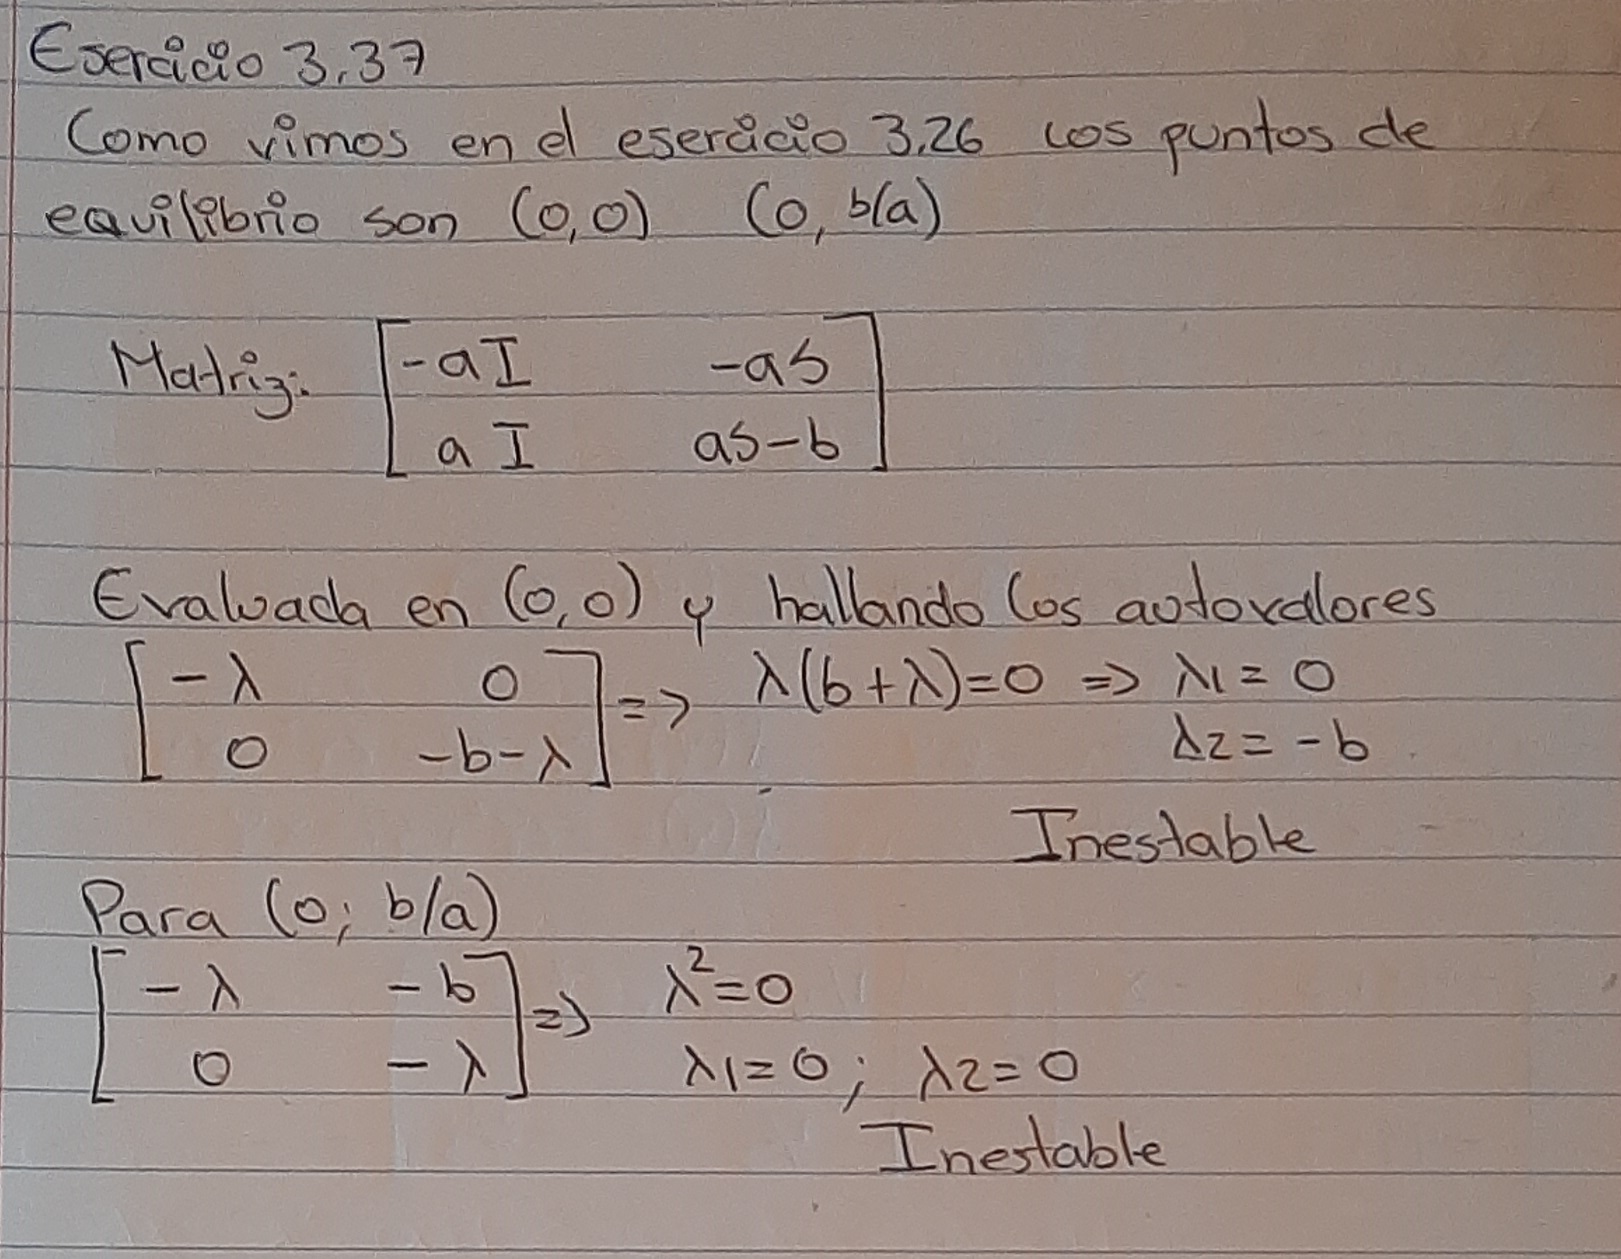 Esercicio 3.37
Como vimos en el esercicio 3.26 los puntos de
equilibrio son (0,0) (0, b/a)
Matriz: [-aI -aS
aI aS-b]
Evaluada en (0,0) y hallando los autovalores
[-λ 0
0 -b-λ] => λ(b+λ)=0 => λ1=0
λ2=-b
Inestable
Para (0; b/a)
[-λ -b
0 -λ] => λ²=0
λ1=0; λ2=0
Inestable